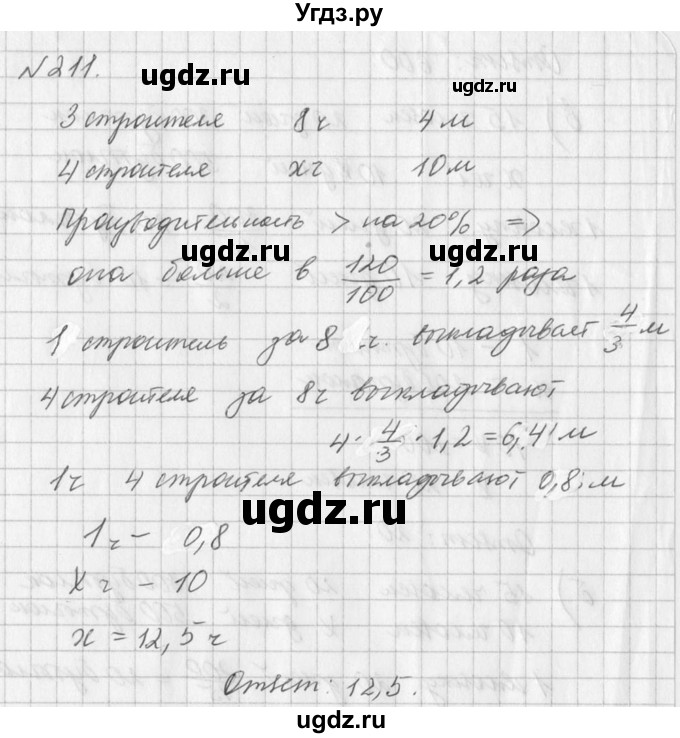 Угdз.ру
№211.
3 строителя 8ч 4м
4 строителя xч 10м
Производительность > на 20% =>
она больше в 120/100 = 1,2 раза
1 строитель за 8 ч. выкладывает 4/3 м
4 строителя за 8ч выкладывают
4 · 4/3 · 1,2 = 6,4 м
1ч 4 строителя выкладывают 0,8 м
1ч - 0,8
Xч - 10
x = 12,5ч
Ответ: 12,5.
ugdz.ru
ugdz.ru
ugdz.ru
ugdz.ru
ugdz.ru
ugdz.ru
ugdz.ru
ugdz.ru